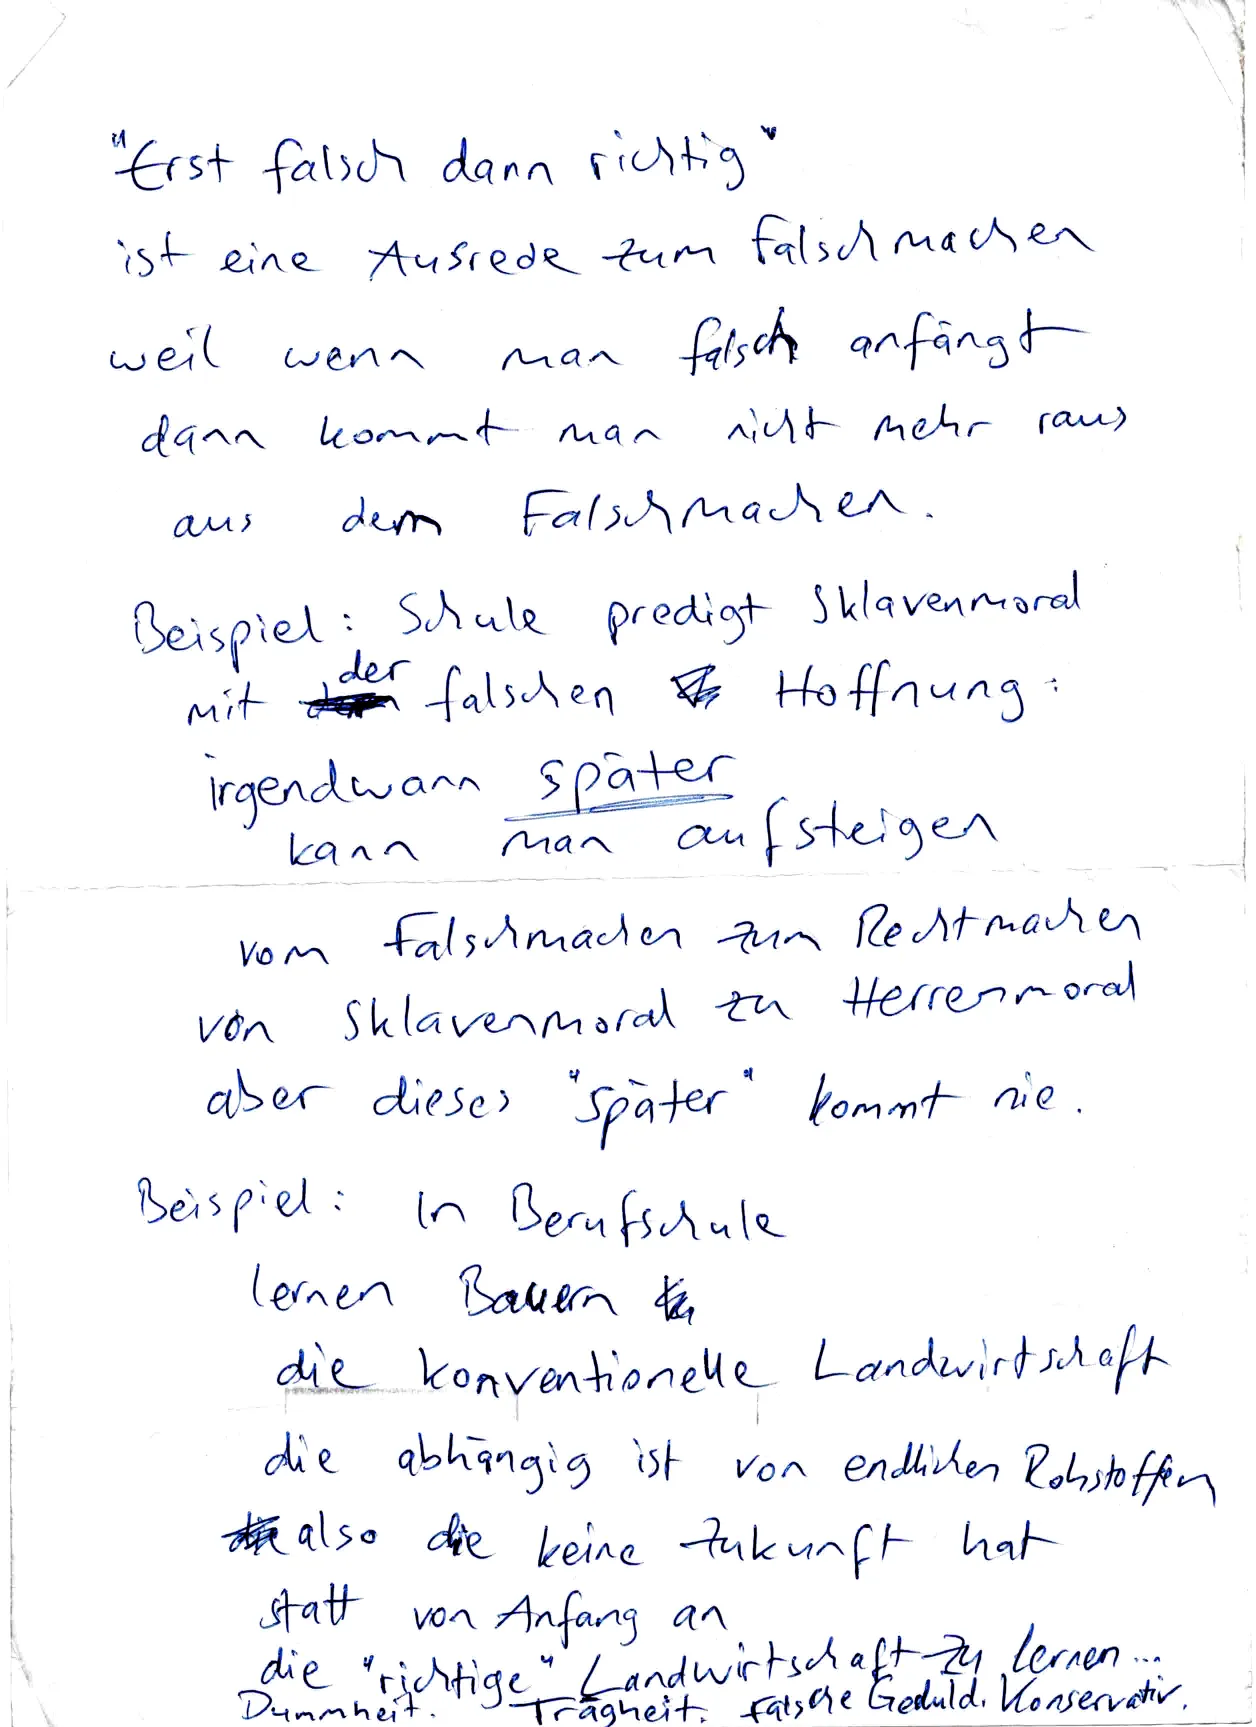 "Erst falsch dann richtig"
ist eine Ausrede zum Falschmachen
weil wenn man falsch anfängt
dann kommt man nicht mehr raus
aus dem Falschmachen.
Beispiel: Schule predigt Sklavenmoral
mit der falschen Hoffnung:
irgendwann später
kann man aufsteigen
vom Falschmachen zum Rechtmachen
von Sklavenmoral zu Herrenmoral
aber dieses "später" kommt nie.
Beispiel: In Berufschule
lernen Bauern
die konventionelle Landwirtschaft
die abhängig ist von endlichen Rohstoffen
also die keine Zukunft hat
statt von Anfang an
die "richtige" Landwirtschaft zu lernen...
Dummheit. Trägheit. Falsche Geduld. Konservativ.